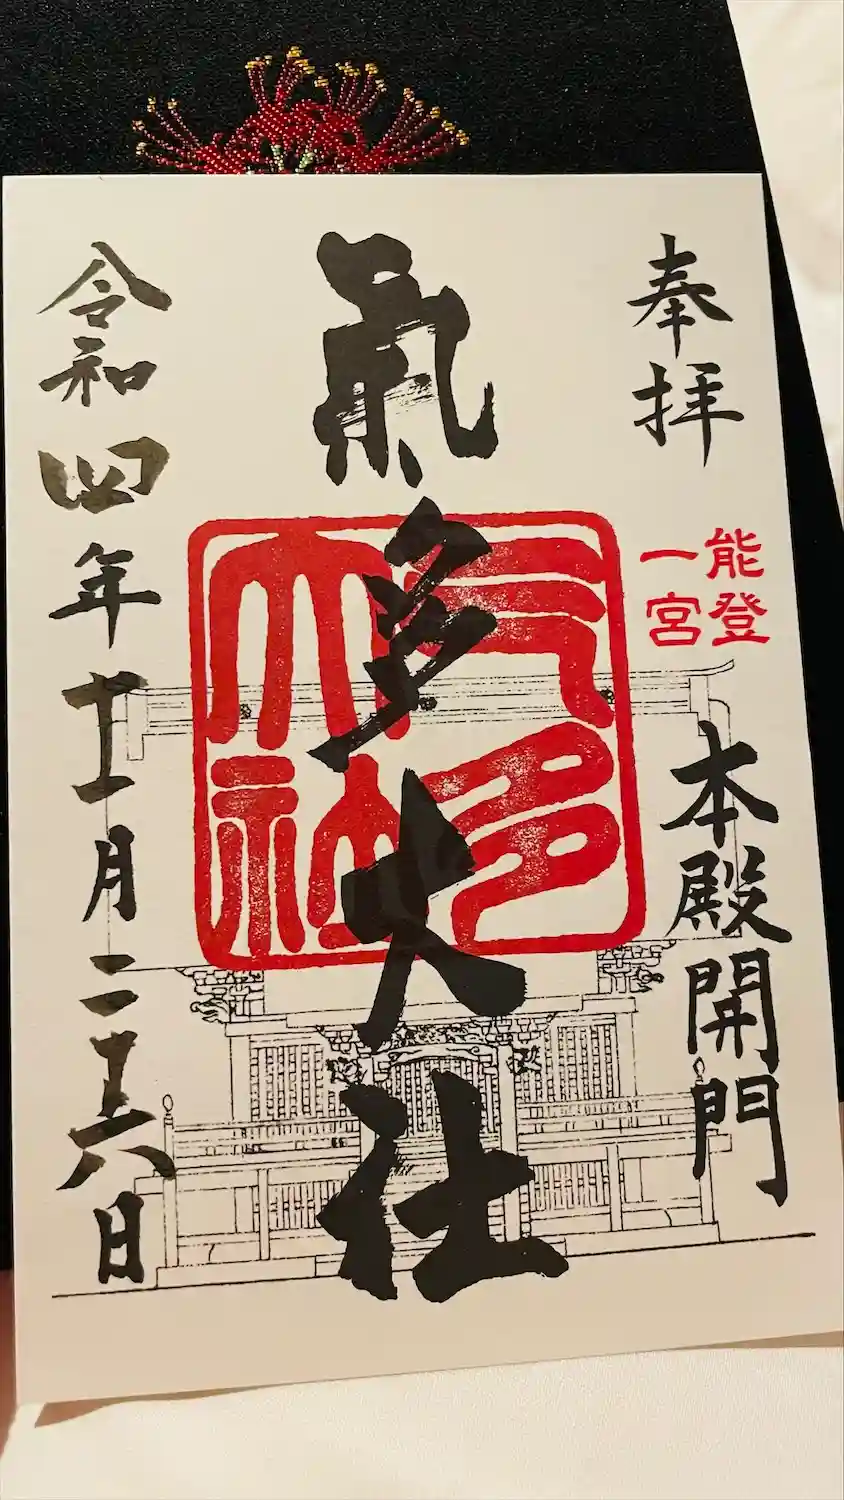 奉拝
能登
一宮
本殿開門
氣多大社
气多
大社
令和四年十一月二十六日